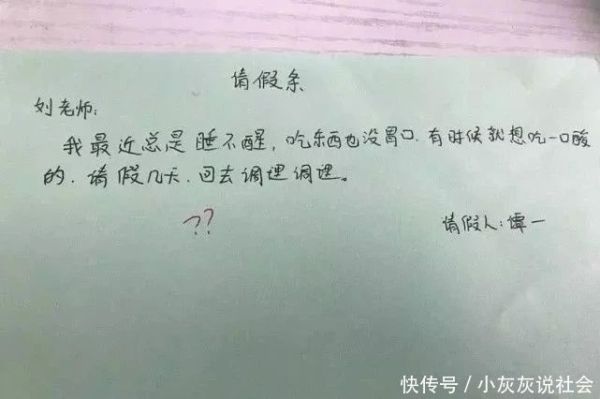 请假条
刘老师:
我最近总是睡不醒,吃东西也没胃口.有时候就想吃一口酸
的.请假几天.回去调理调理。
??
请假人:谭一
快传号/小灰灰说社会